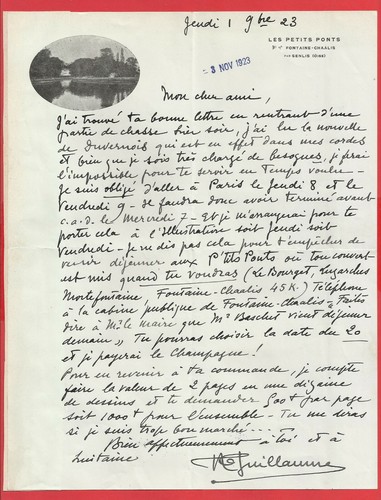 Jeudi 1 9bre 23
LES PETITS PONTS
Pr FONTAINE-CHAALIS
PAR SENLIS (OISE)
- 3 NOV 1923
Mon cher ami,
J'ai trouvé ta bonne lettre en rentrant d'une
partie de chasse hier soir, j'ai lu la nouvelle
de Duvernois qui est en effet dans mes cordes
et bien que je sois très chargé de besognes, je ferai
l'impossible pour te servir en temps voulu -
Je suis obligé d'aller à Paris le Jeudi 8, et le
Vendredi 9 - Il faudra donc avoir terminé avant
c.a.d. le Mercredi 7 - Et je m'arrangerai pour te
porter cela à l'Illustration soit Jeudi soit
Vendredi - Je ne dis pas cela pour t'empêcher de
venir déjeuner aux P'tits Ponts où ton couvert
est mis quand tu voudras (Le Bourget,
Mortefontaine, Fontaine-Chaalis 45 K.) Téléphone
à la cabine publique de Fontaine-Chaalis "Faites
dire à Mr le Maire que Mr Baschet vient déjeuner
demain" Tu pourras choisir la date du 20
et je payerai le Champagne!
Pour en revenir à ta commande, je compte
faire la valeur de 2 pages en une dizaine
de dessins et te demander 500 f par page
soit 1000 f pour l'ensemble - Tu me diras
si je suis trop bon marché...
Bien affectueusement à toi et à
Guillaume